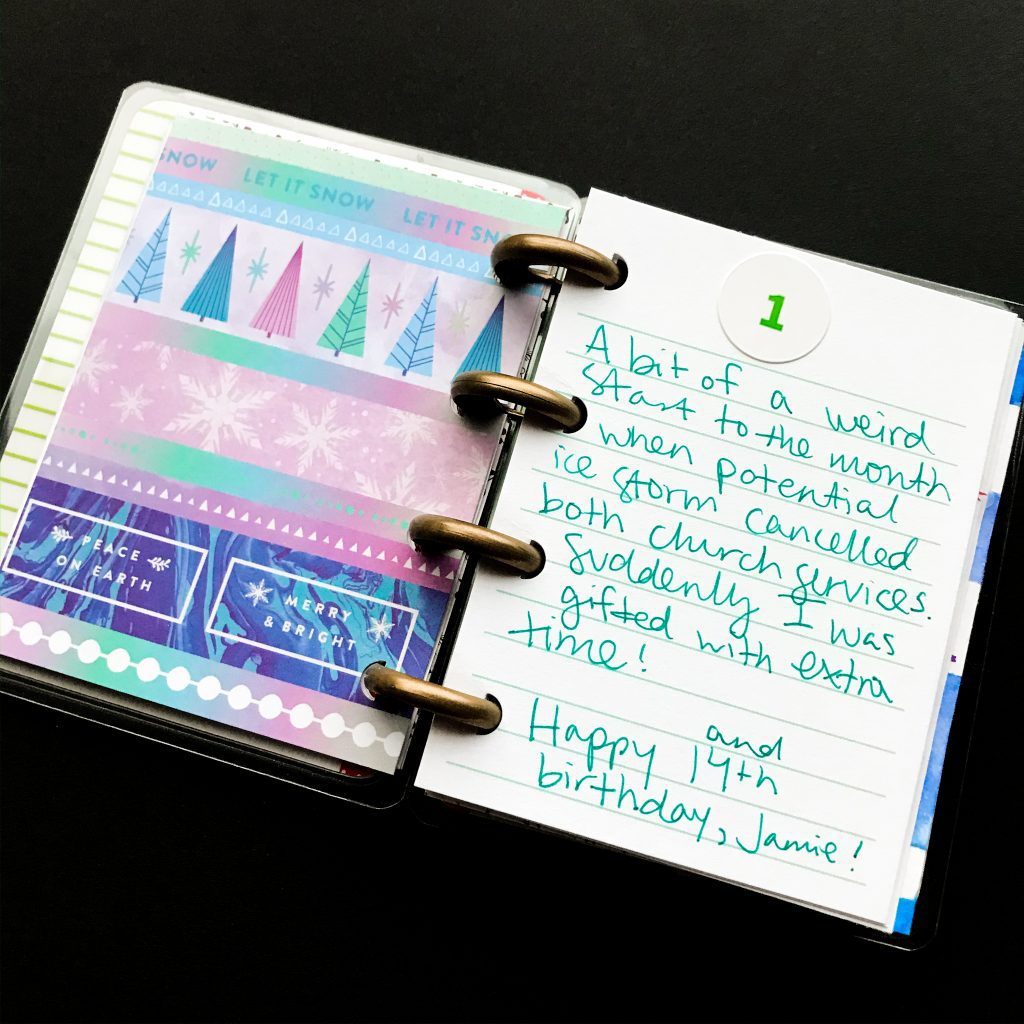 SNOW LET IT SNOW LET IT SN
PEACE
ON EARTH
MERRY
& BRIGHT
1
A bit of a weird
start to the month
when potential
ice storm cancelled
both church services.
Suddenly I was
gifted with extra
time!
and
Happy 14th
birthday, Jamie!